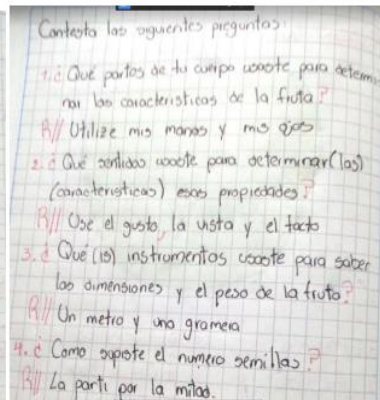 Contesta las siguientes preguntas:
1. ¿Qué partes de tu cuerpo usaste para determi
nar las caracteristicas de la fruta?
R// Utilize mis manos y mis ojos
2. ¿Qué sentidos usaste para determinar(las)
(caracteristicas) esas propiedades?
R// Use el gusto, la vista y el tacto
3. ¿Qué (is) instrumentos usaste para saber
las dimensiones y el peso de la fruta?
R// Un metro y una gramera
4. ¿Como supiste el numero semillas?
R// La parti por la mitad.